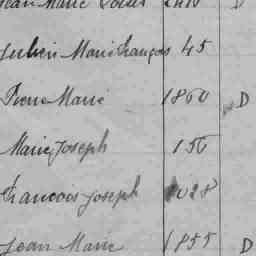 Jean Marie Louis D
Julien Marie François 45
Pierre Marie 1860 D
Marie Joseph 150
François Joseph 1028
Jean Marie 1855 D